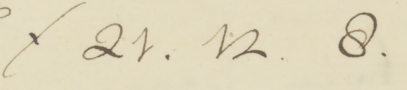 † 21. 12. 8.